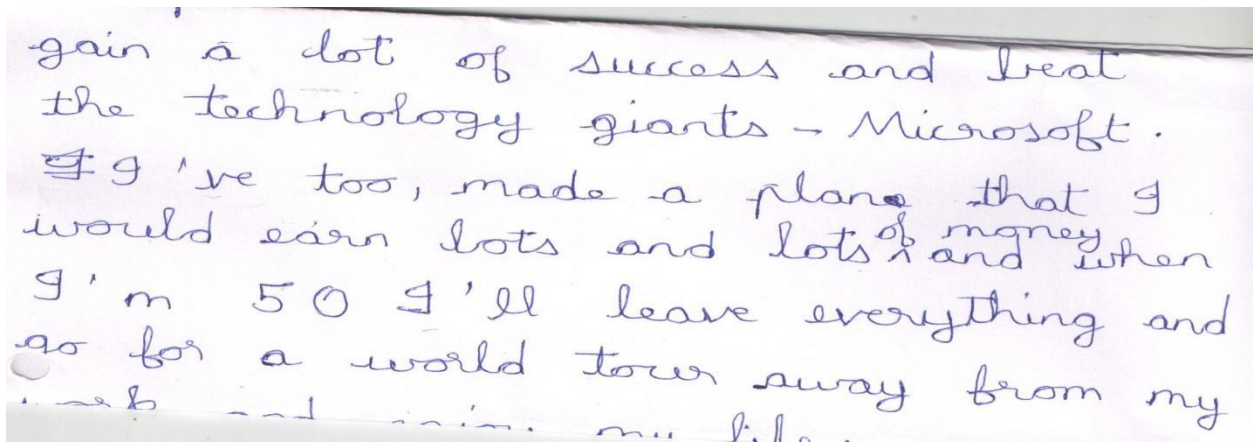 gain a lot of success and beat
the technology giants - Microsoft.
I've too, made a plan that I
would earn lots and lots of money and when
I'm 50 I'll leave everything and
go for a world tour away from my
and my life.